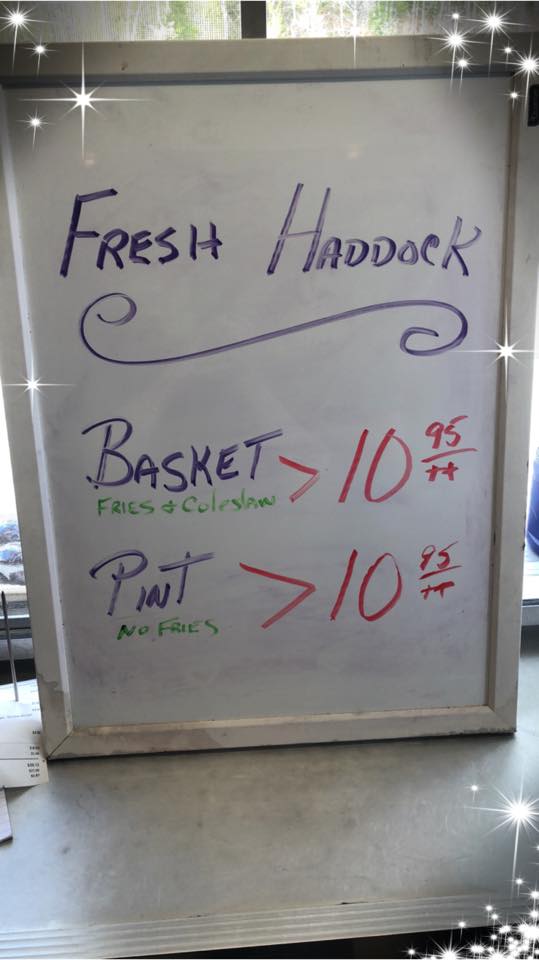 FRESH HADDOCK
BASKET > 10 95/++
FRIES & Coleslaw
PINT > 10 95/++
NO FRIES